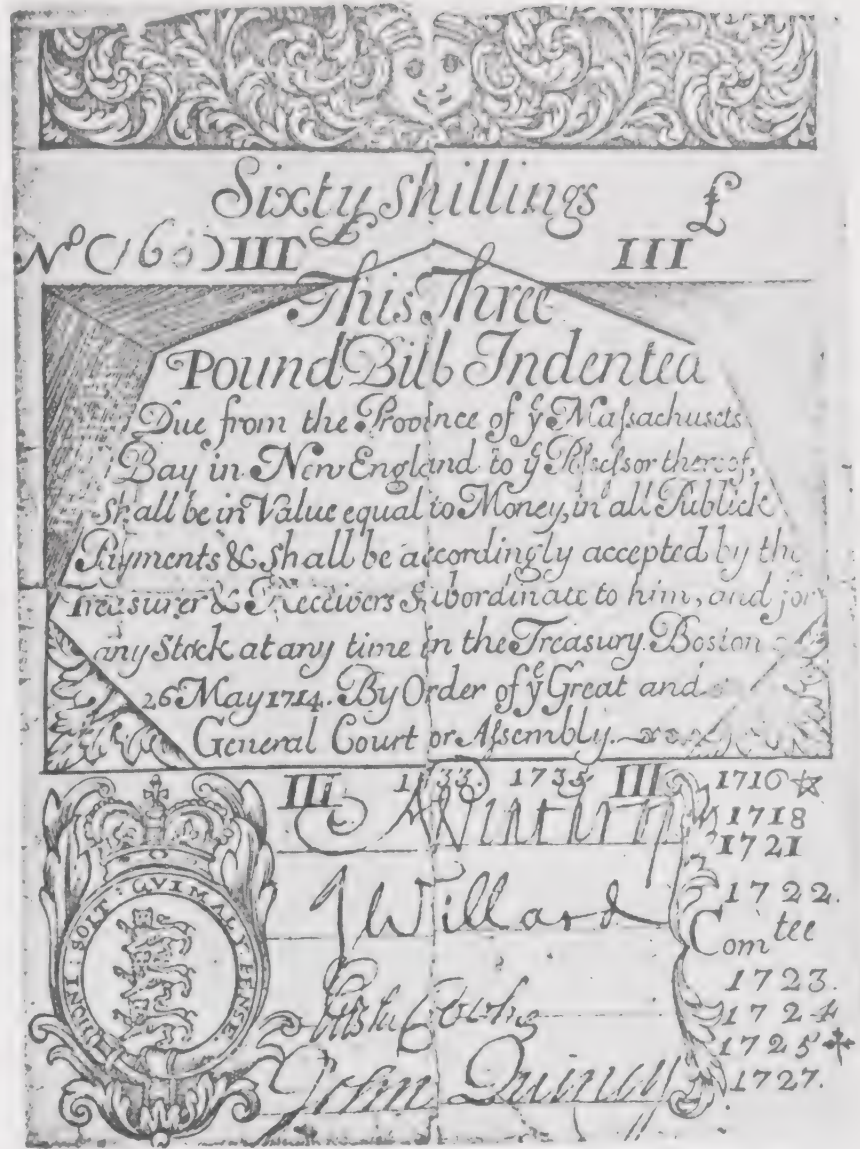 Sixty shillings £
£
No (160) III III
This Three
Pound Bill Indented
Due from the Province of ye Maſsachusets
Bay in New England to ye Poſseſsor thereof,
shall be in Value equal to Money, in all Publick
Payments & shall be accordingly accepted by the
Treasurer & Receivers Subordinate to him, and for
any Stock at any time in the Treasury. Boston
26 May 1714. By Order of ye Great and
General Court or Aſsembly.
III 1733. 1735 III 1716
1718
1721
A Winthrop
1722.
J Willard
Comtee
1723.
1724
1725
John Quincy
1727.
HONI SOIT QVI MAL Y PENSE